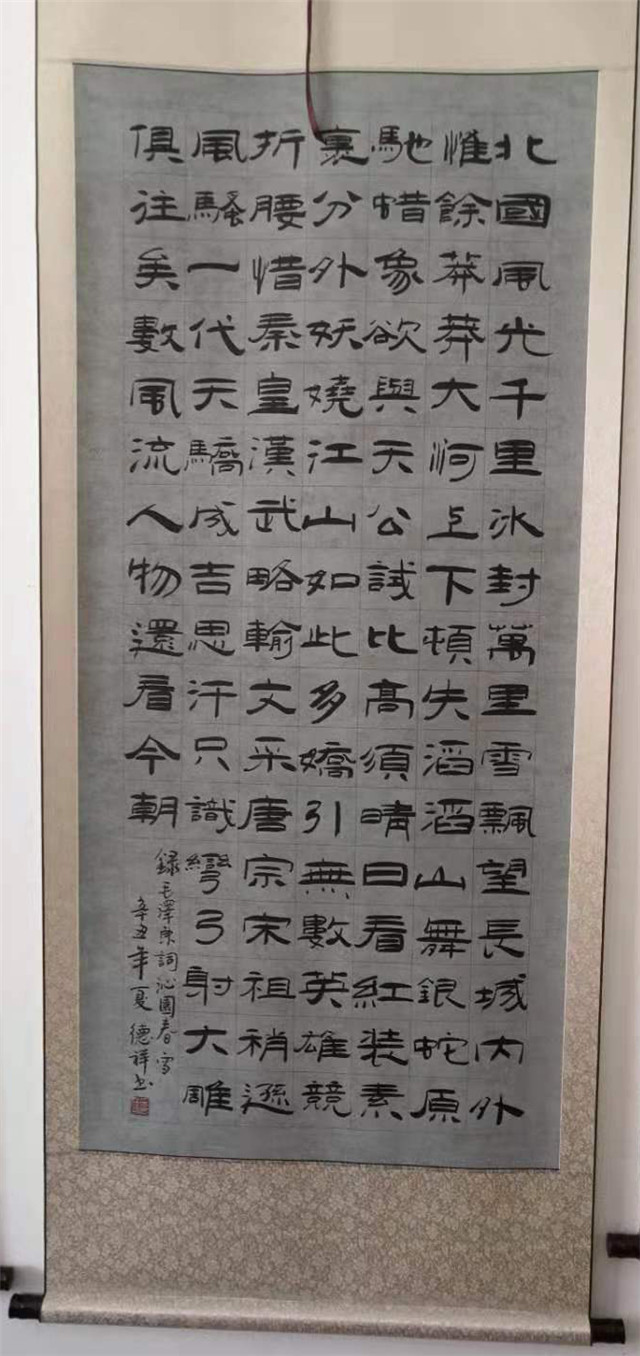 北國風光千里冰封萬里雪飄望長城内外
惟餘莽莽大河上下頓失滔滔山舞銀蛇原
馳蜡象欲與天公試比高須晴日看紅装素
裹分外妖嬈江山如此多嬌引無數英雄競
折腰惜秦皇漢武略輸文采唐宗宋祖稍遜
風騷一代天驕成吉思汗只識彎弓射大雕
俱往矣數風流人物還看今朝
録毛澤東詞沁園春雪
辛丑年夏德祥书